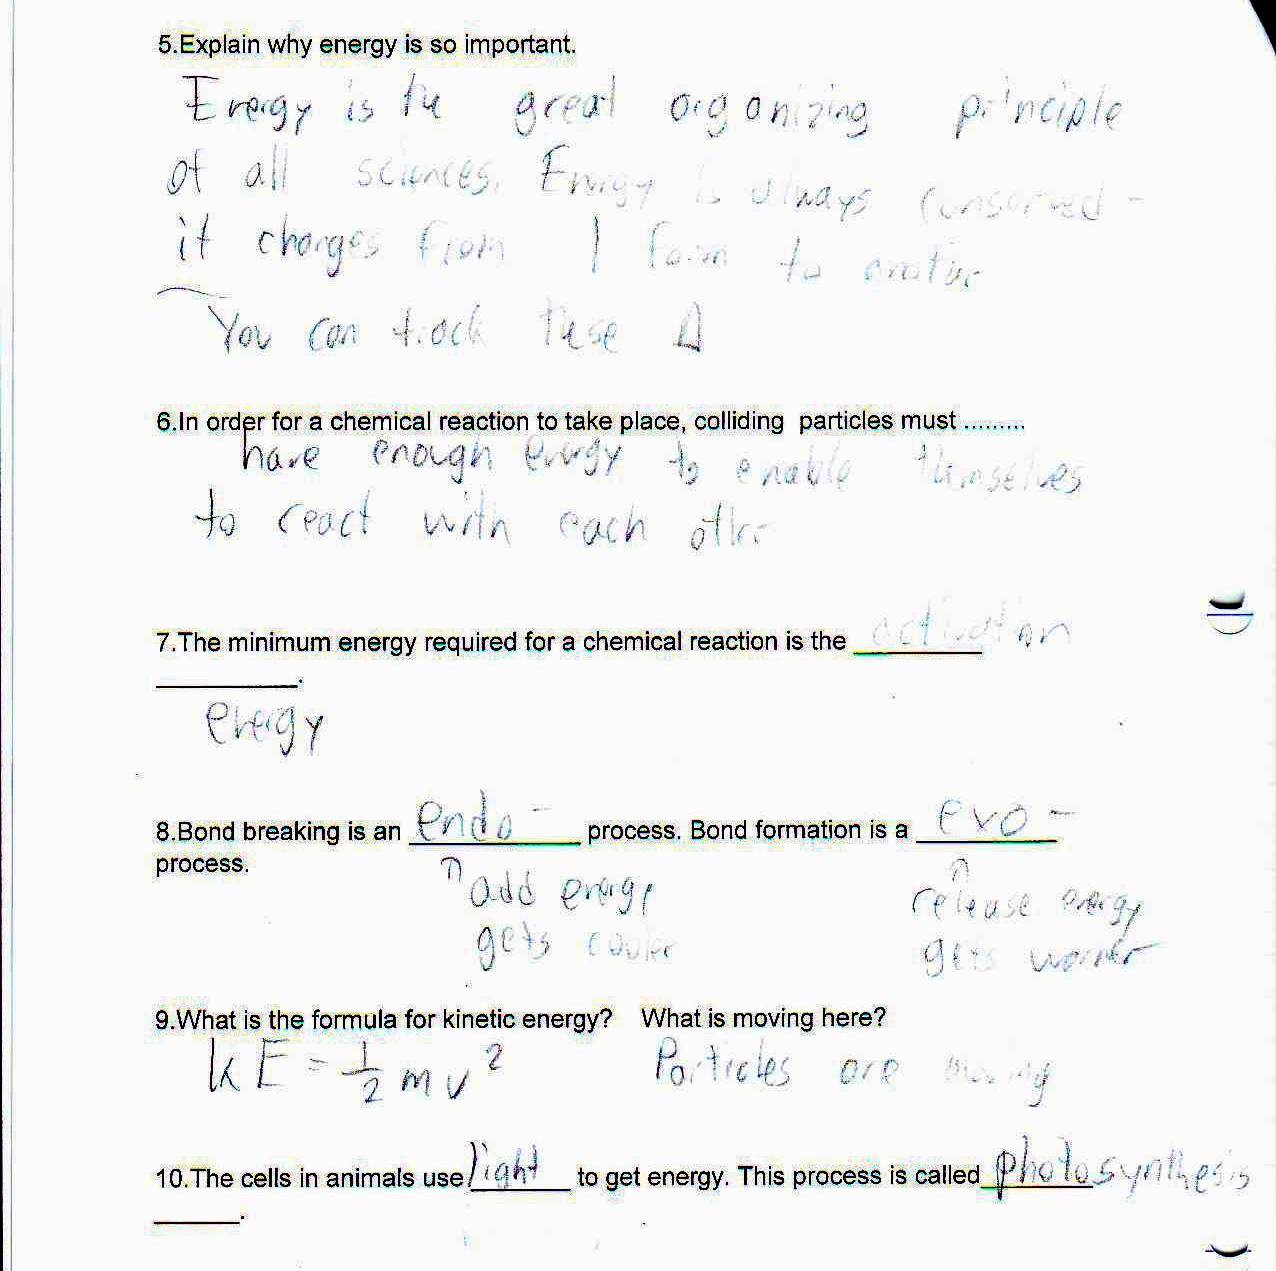 5.Explain why energy is so important.
Energy is the great organizing principle
of all sciences. Energy is always conserved -
it changes from 1 form to another
You can track these Δ
6.In order for a chemical reaction to take place, colliding particles must .........
have enough energy to enable themselves
to react with each other
7.The minimum energy required for a chemical reaction is the activation
__________.
energy
8.Bond breaking is an endo- process. Bond formation is a exo-
process.
↑ add energy ↑ release energy
gets cooler gets warmer
9.What is the formula for kinetic energy? What is moving here?
KE = 1/2 mv² Particles are moving
10.The cells in animals use light to get energy. This process is called photosynthesis
______.